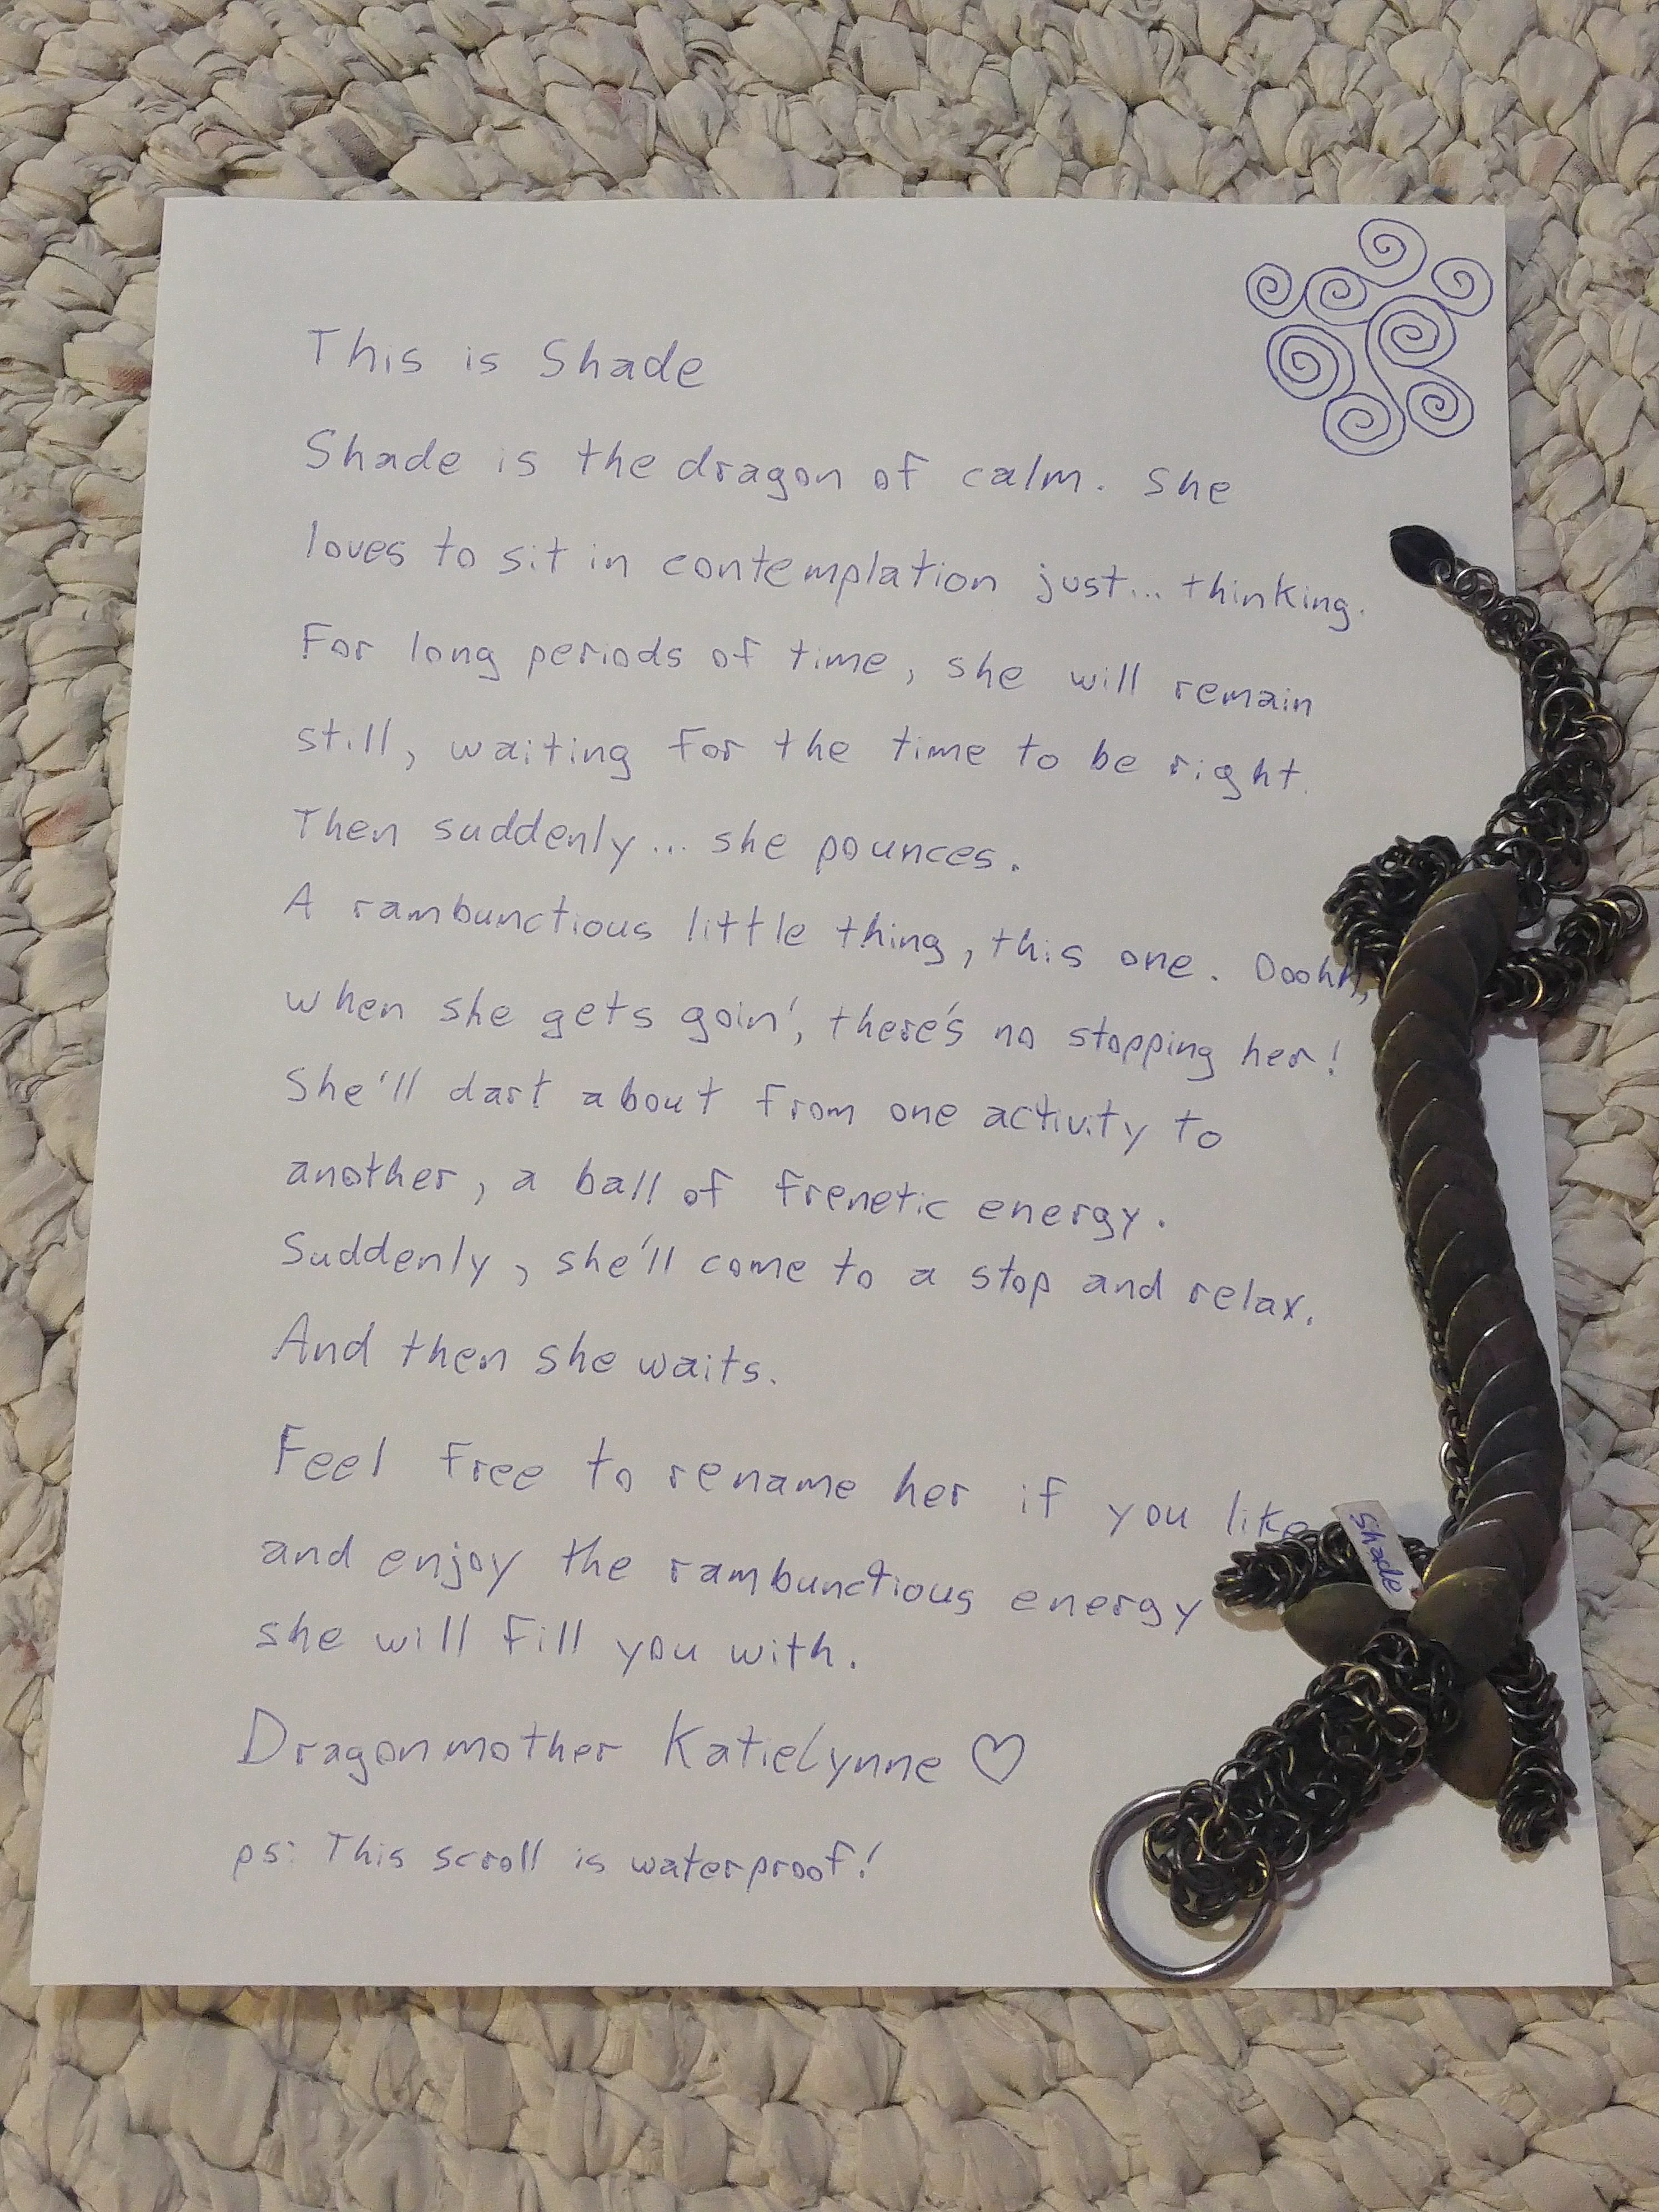 This is Shade
Shade is the dragon of calm. She
loves to sit in contemplation just... thinking.
For long periods of time, she will remain
still, waiting for the time to be right.
Then suddenly... she pounces.
A rambunctious little thing, this one. Ooohh,
when she gets goin', there's no stopping her!
She'll dart about from one activity to
another, a ball of frenetic energy.
Suddenly, she'll come to a stop and relax.
And then she waits.
Feel free to rename her if you like
and enjoy the rambunctious energy
she will fill you with.
Dragonmother KatieLynne ♡
ps: This scroll is waterproof!
Shade